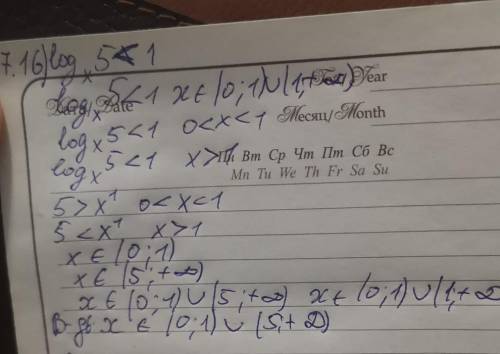 7.16) log_x 5 < 1
log_x 5 < 1 x ∈ (0; 1) ∪ (1; +∞) Year
Date
log_x 5 < 1 0 < x < 1 Месяц/Month
log_x 5 < 1 x > 1 Пн Вт Ср Чт Пт Сб Вс
Mn Tu We Th Fr Sa Su
5 > x¹ 0 < x < 1
5 < x¹ x > 1
x ∈ (0; 1)
x ∈ (5; +∞)
x ∈ (0; 1) ∪ (5; +∞) x ∈ (0; 1) ∪ (1; +∞
x ∈ (0; 1) ∪ (5; +∞)